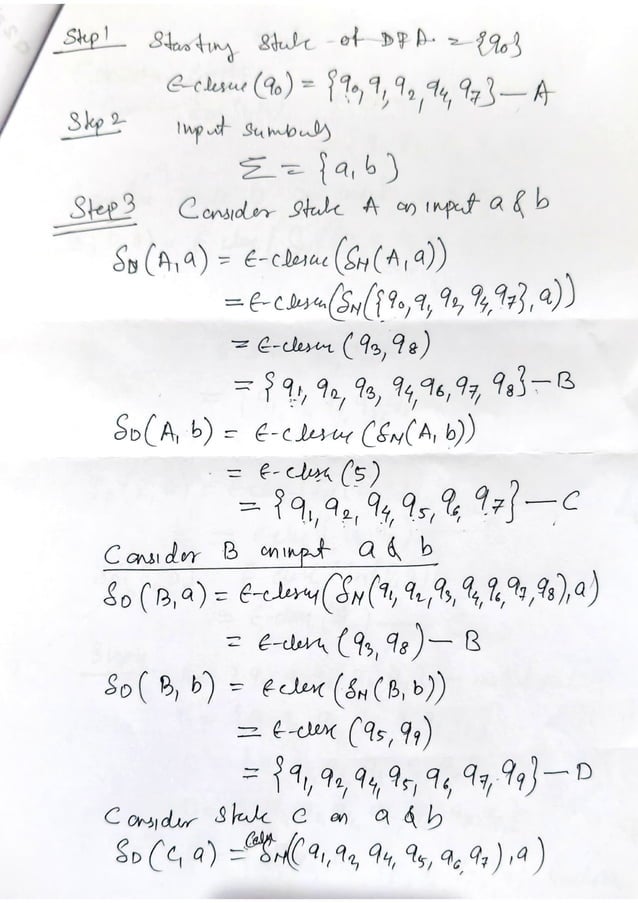 Step 1 Starting State of DFA = {q0}
ε-closure (q0) = {q0, q1, q2, q4, q7} — A
Step 2 Input Sumbuls
Σ = {a, b}
Step 3 Consider State A on input a & b
δN (A, a) = ε-closure (δN (A, a))
= ε-closure (δN ({q0, q1, q2, q4, q7}, a))
= ε-closure (q3, q8)
= {q1, q2, q3, q4, q6, q7, q8} — B
δD (A, b) = ε-closure (δN (A, b))
= ε-closure (5)
= {q1, q2, q4, q5, q6, q7} — C
Consider B on input a & b
δD (B, a) = ε-closure (δN (q1, q2, q3, q4, q6, q7, q8), a)
= ε-closure (q3, q8) — B
δD (B, b) = ε closure (δN (B, b))
= ε-closure (q5, q9)
= {q1, q2, q4, q5, q6, q7, q9} — D
Consider State C on a & b
δD (C, a) = δN ((q1, q2, q4, q5, q6, q7), a)